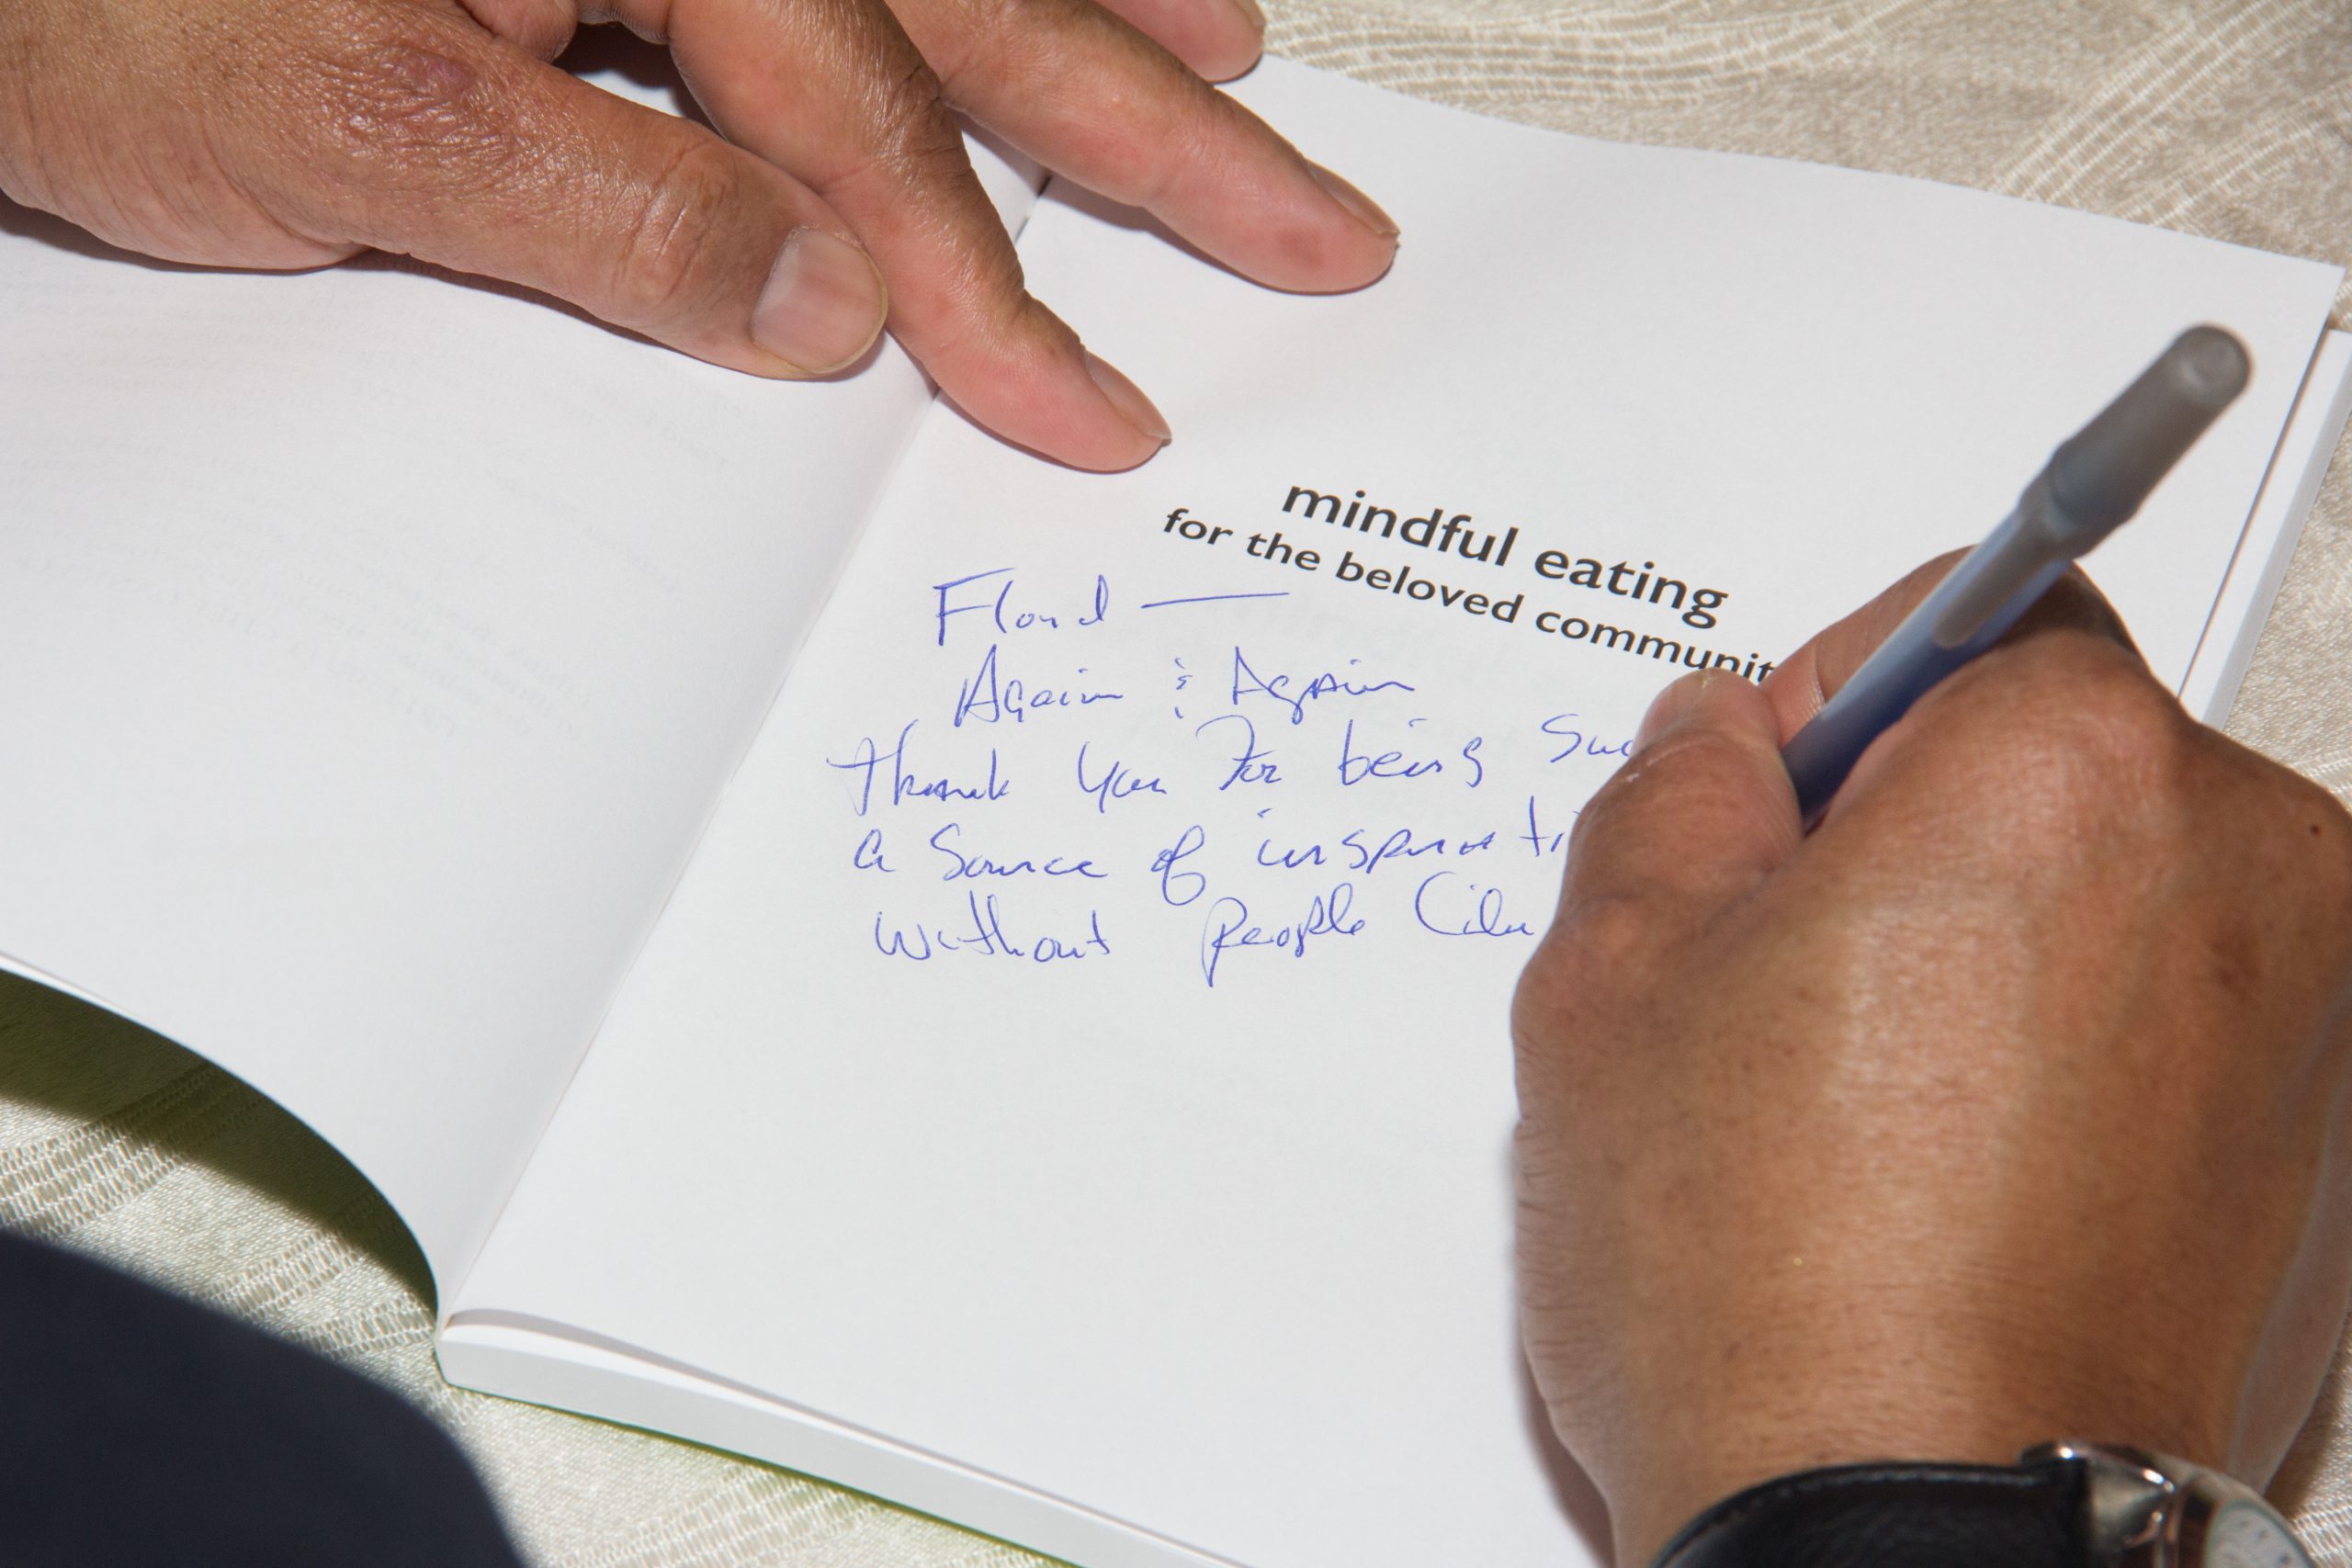 mindful eating
for the beloved communit
Floyd —
Again & Again
Thank you For being Suc
a Source of inspirati
without people like